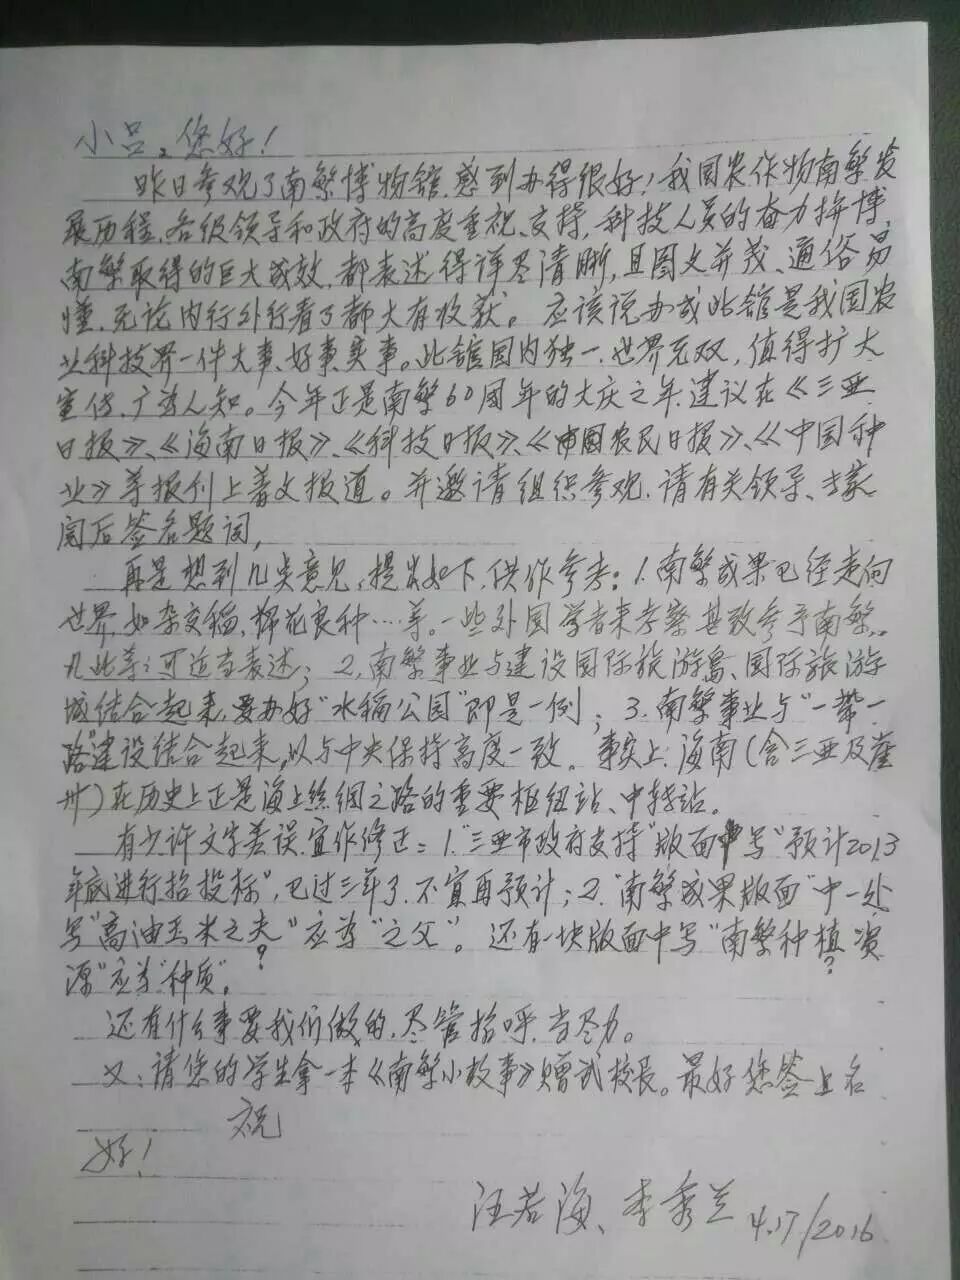 小吕，您好！
昨日参观了南繁博物馆，感到办得很好！我国农作物南繁发
展历程，各级领导和政府的高度重视、支持，科技人员的奋力拚博，
南繁取得的巨大成效，都表述得详尽清晰，且图文并茂、通俗易
懂，无论内行外行看了都大有收获。应该说办成此馆是我国农
业科技界一件大事、好事、实事。此馆国内独一，世界无双，值得扩大
宣传、广为人知。今年正是南繁60周年的大庆之年，建议在《三亚
日报》、《海南日报》、《科技日报》、《中国农民日报》、《中国种
业》等报刊上著文报道。并邀请组织参观，请有关领导、专家
阅后签名题词，
再是想到几点意见，提出如下，供作参考：1.南繁成果已经走向
世界，如杂交稻、棉花良种……等。一些外国学者来考察甚致参予南繁，
凡此等：可适当表述；2.南繁事业与建设国际旅游岛、国际旅游
城结合起来，要办好"水稻公园"即是一例；3.南繁事业与"一带一
路"建设结合起来，以与中央保持高度一致。事实上：海南(含三亚及崖
州)在历史上正是海上丝绸之路的重要枢纽站、中转站。
有少许文字差误，宜作修正：1."三亚市政府支持"版面中写"预计2013
年底进行招投标"，已过三年了，不宜再预计；2."南繁成果版面"中一处
写"高油玉米之夫"应为"之父"。还有一块版面中写"南繁种植资
？ ？
源"应为"种质"。
还有什么事要我们做的，尽管招呼，当尽力。
又：请您的学生拿一本《南繁小故事》赠武校长。最好您签上名
祝
好！
汪若海、李秀兰 4.17/2016